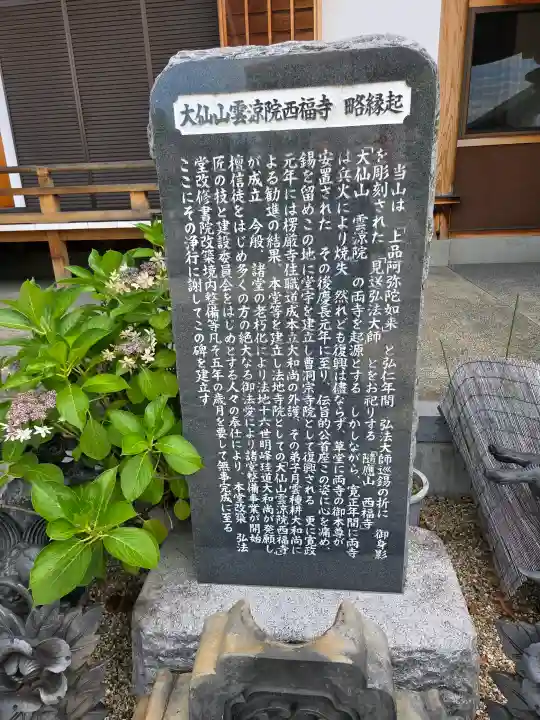 大仙山雲涼院西福寺 略縁起
当山は 「上品阿弥陀如来」と弘仁年間 弘法大師巡錫の折に 御身影
を彫刻された「見返弘法大師」とをお祀りする「隨應山 西福寺」
「大仙山 雲涼院」の両寺を起源とする しかしながら、寛正年間に両寺
は兵火により焼失 然れども復興は儘ならず、草堂に両寺の御本尊が
安置された その後慶長元年に至り、伝旨的公首座この姿に心を痛め、
錫を留めこの地に堂宇を建立し曹洞宗寺院として復興される 更に寛政
元年には楞厳寺住職道成本立大和尚の外護、その弟子月雲種耕大和尚に
よる勧進の結果、本堂等を建立し法地寺院としての「大仙山雲涼院西福寺」
が成立 今般、諸堂の老朽化により法地十六世明峰珪道大和尚が発願し
檀信徒をはじめ多くの方の絶大なる御法愛により諸堂整備事業が開始
匠の技と建設委員会をはじめとする人々の奉仕により、本堂改築、弘法
堂改修書院改築境内整備等凡そ五年の歳月を要して無事完成に至る
ここにその浄行に謝してこの碑を建立す